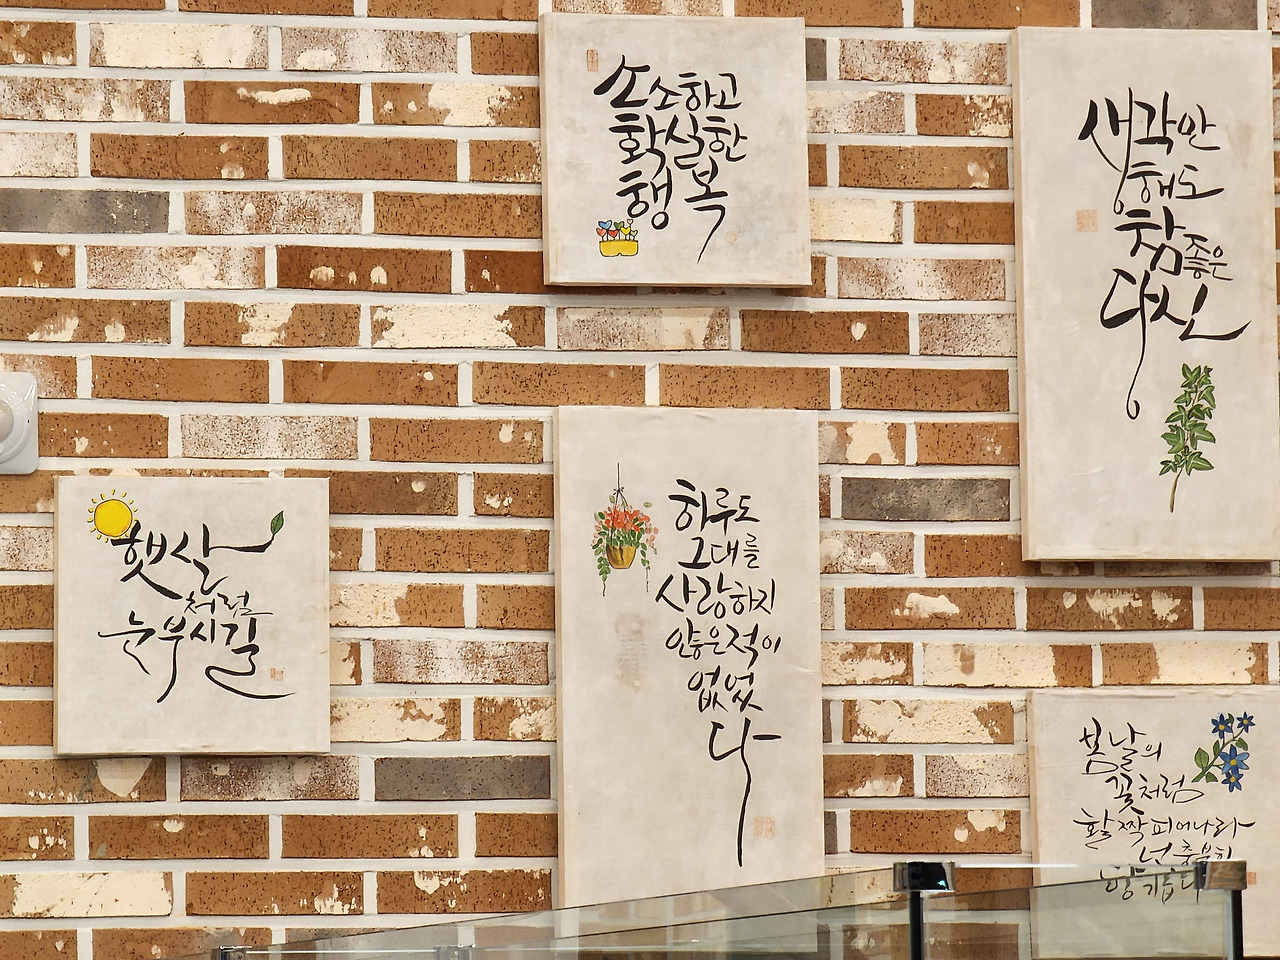 소소하고
확실한
행복
생각만
해도
참 좋은
당신
햇살
처럼
눈부시길
하루도
그대를
사랑하지
않은 적이
없었
다
봄날의
꽃처럼
활짝 피어나라
넌 충분히
향기롭다